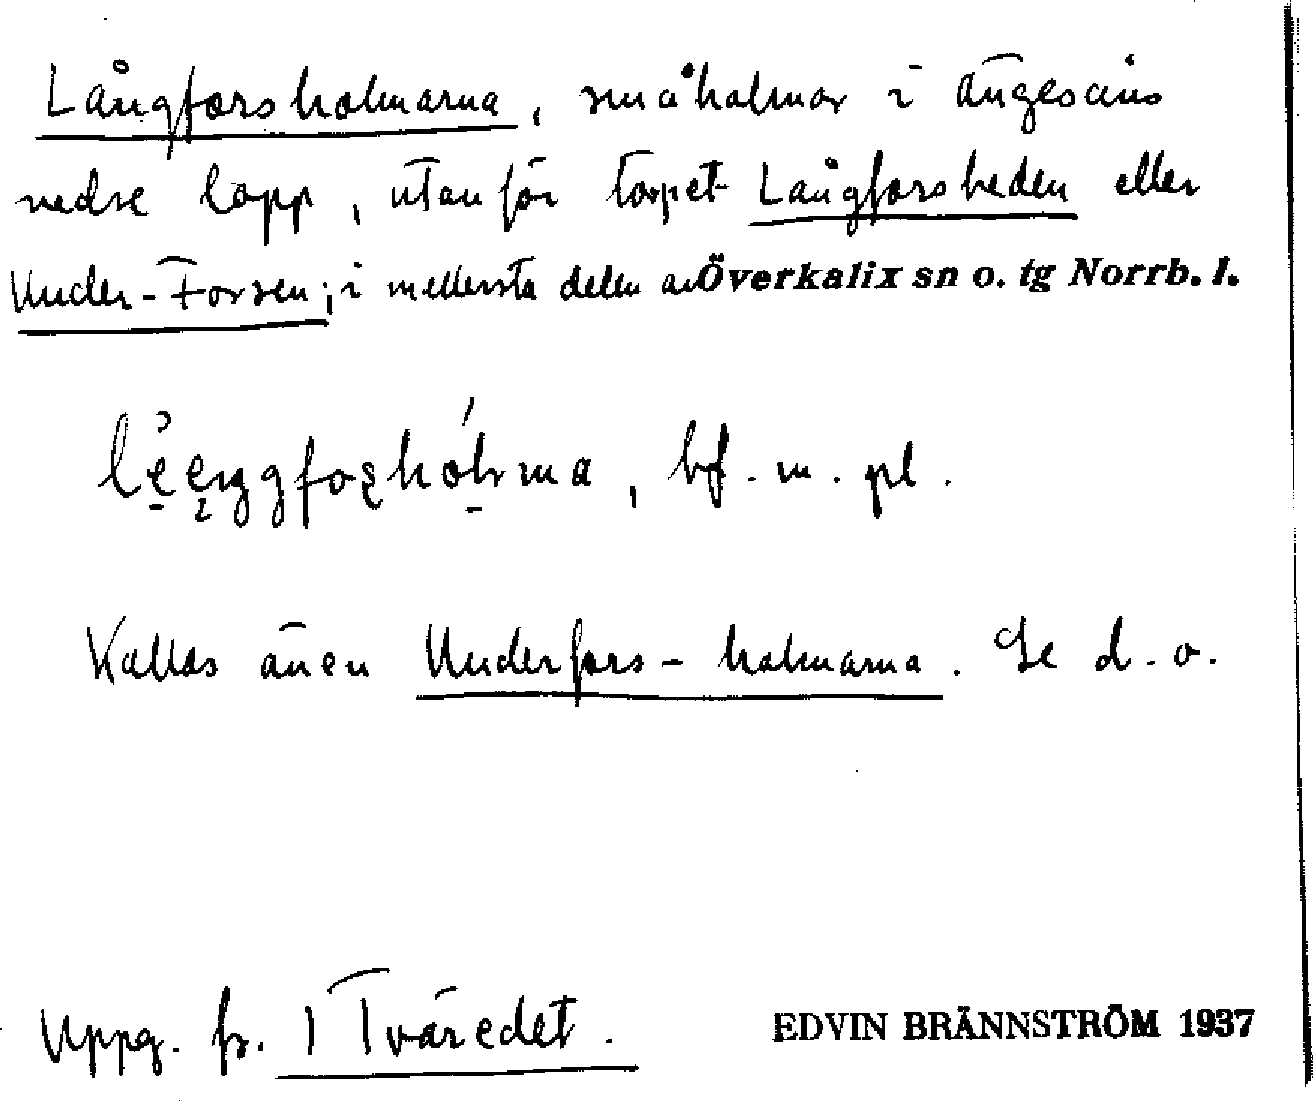 Långforsholmarna, småholmar i Ängesåns
nedre lopp, utanför torpet Långforsheden eller
Under-Forsen; i mellersta delen av Överkalix sn o. tg Norrb. l.
bf. m. pl.
Kallas även Underfors-holmarna. Se d. o.
Uppg. fr. I Tväredet.
EDVIN BRÄNNSTRÖM 1937